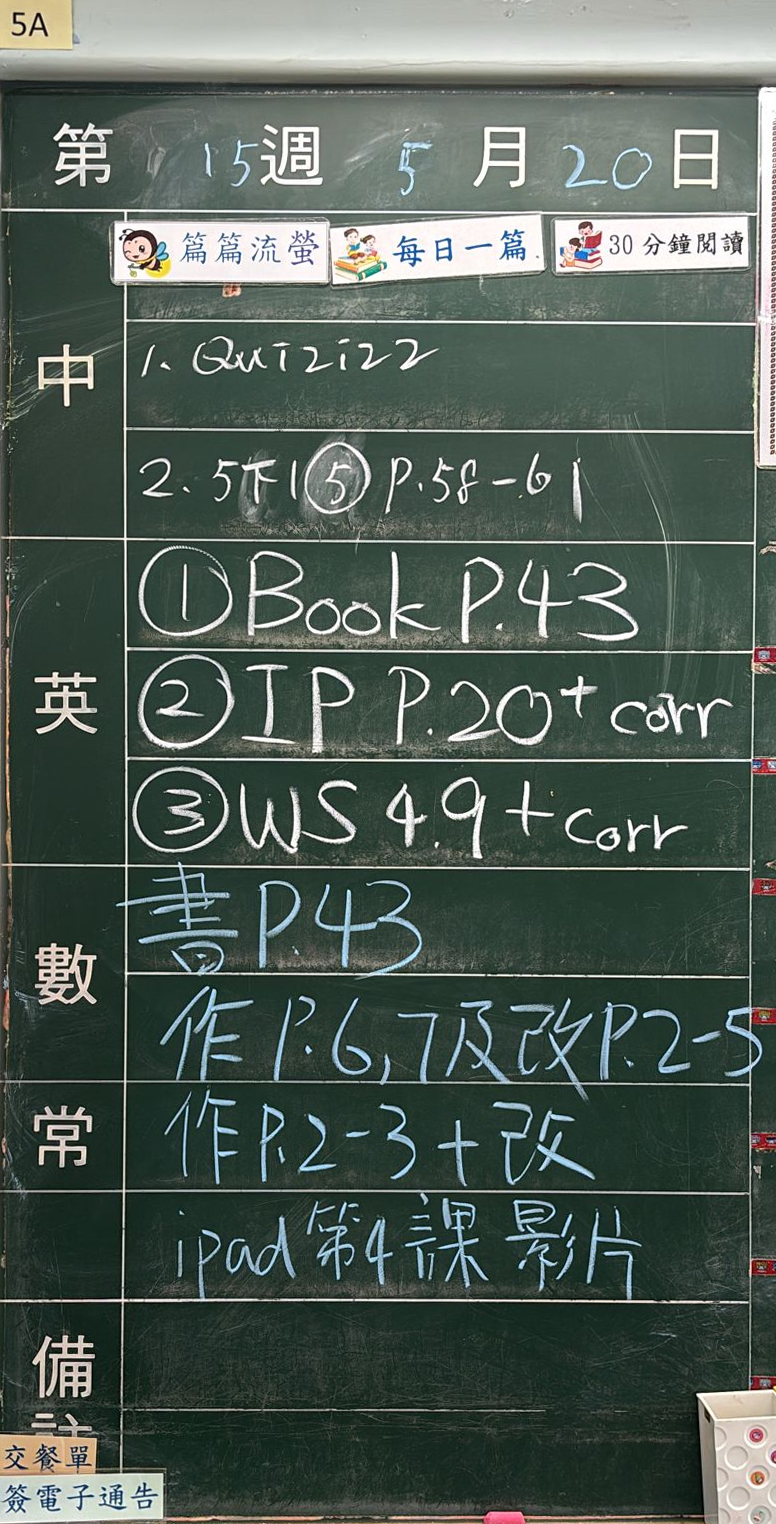 5A
第 15 週 5 月 20 日
篇篇流螢 每日一篇 30分鐘閱讀
中
1. Quizizz
2. 5下1⑤ P.58-61
英
① Book P.43
② IP P.20 + corr
③ WS 4.9 + corr
數
書 P.43
作 P.6,7及改P.2-5
常
作 P.2-3 + 改
ipad 第4課 影片
備註
交餐單
簽電子通告